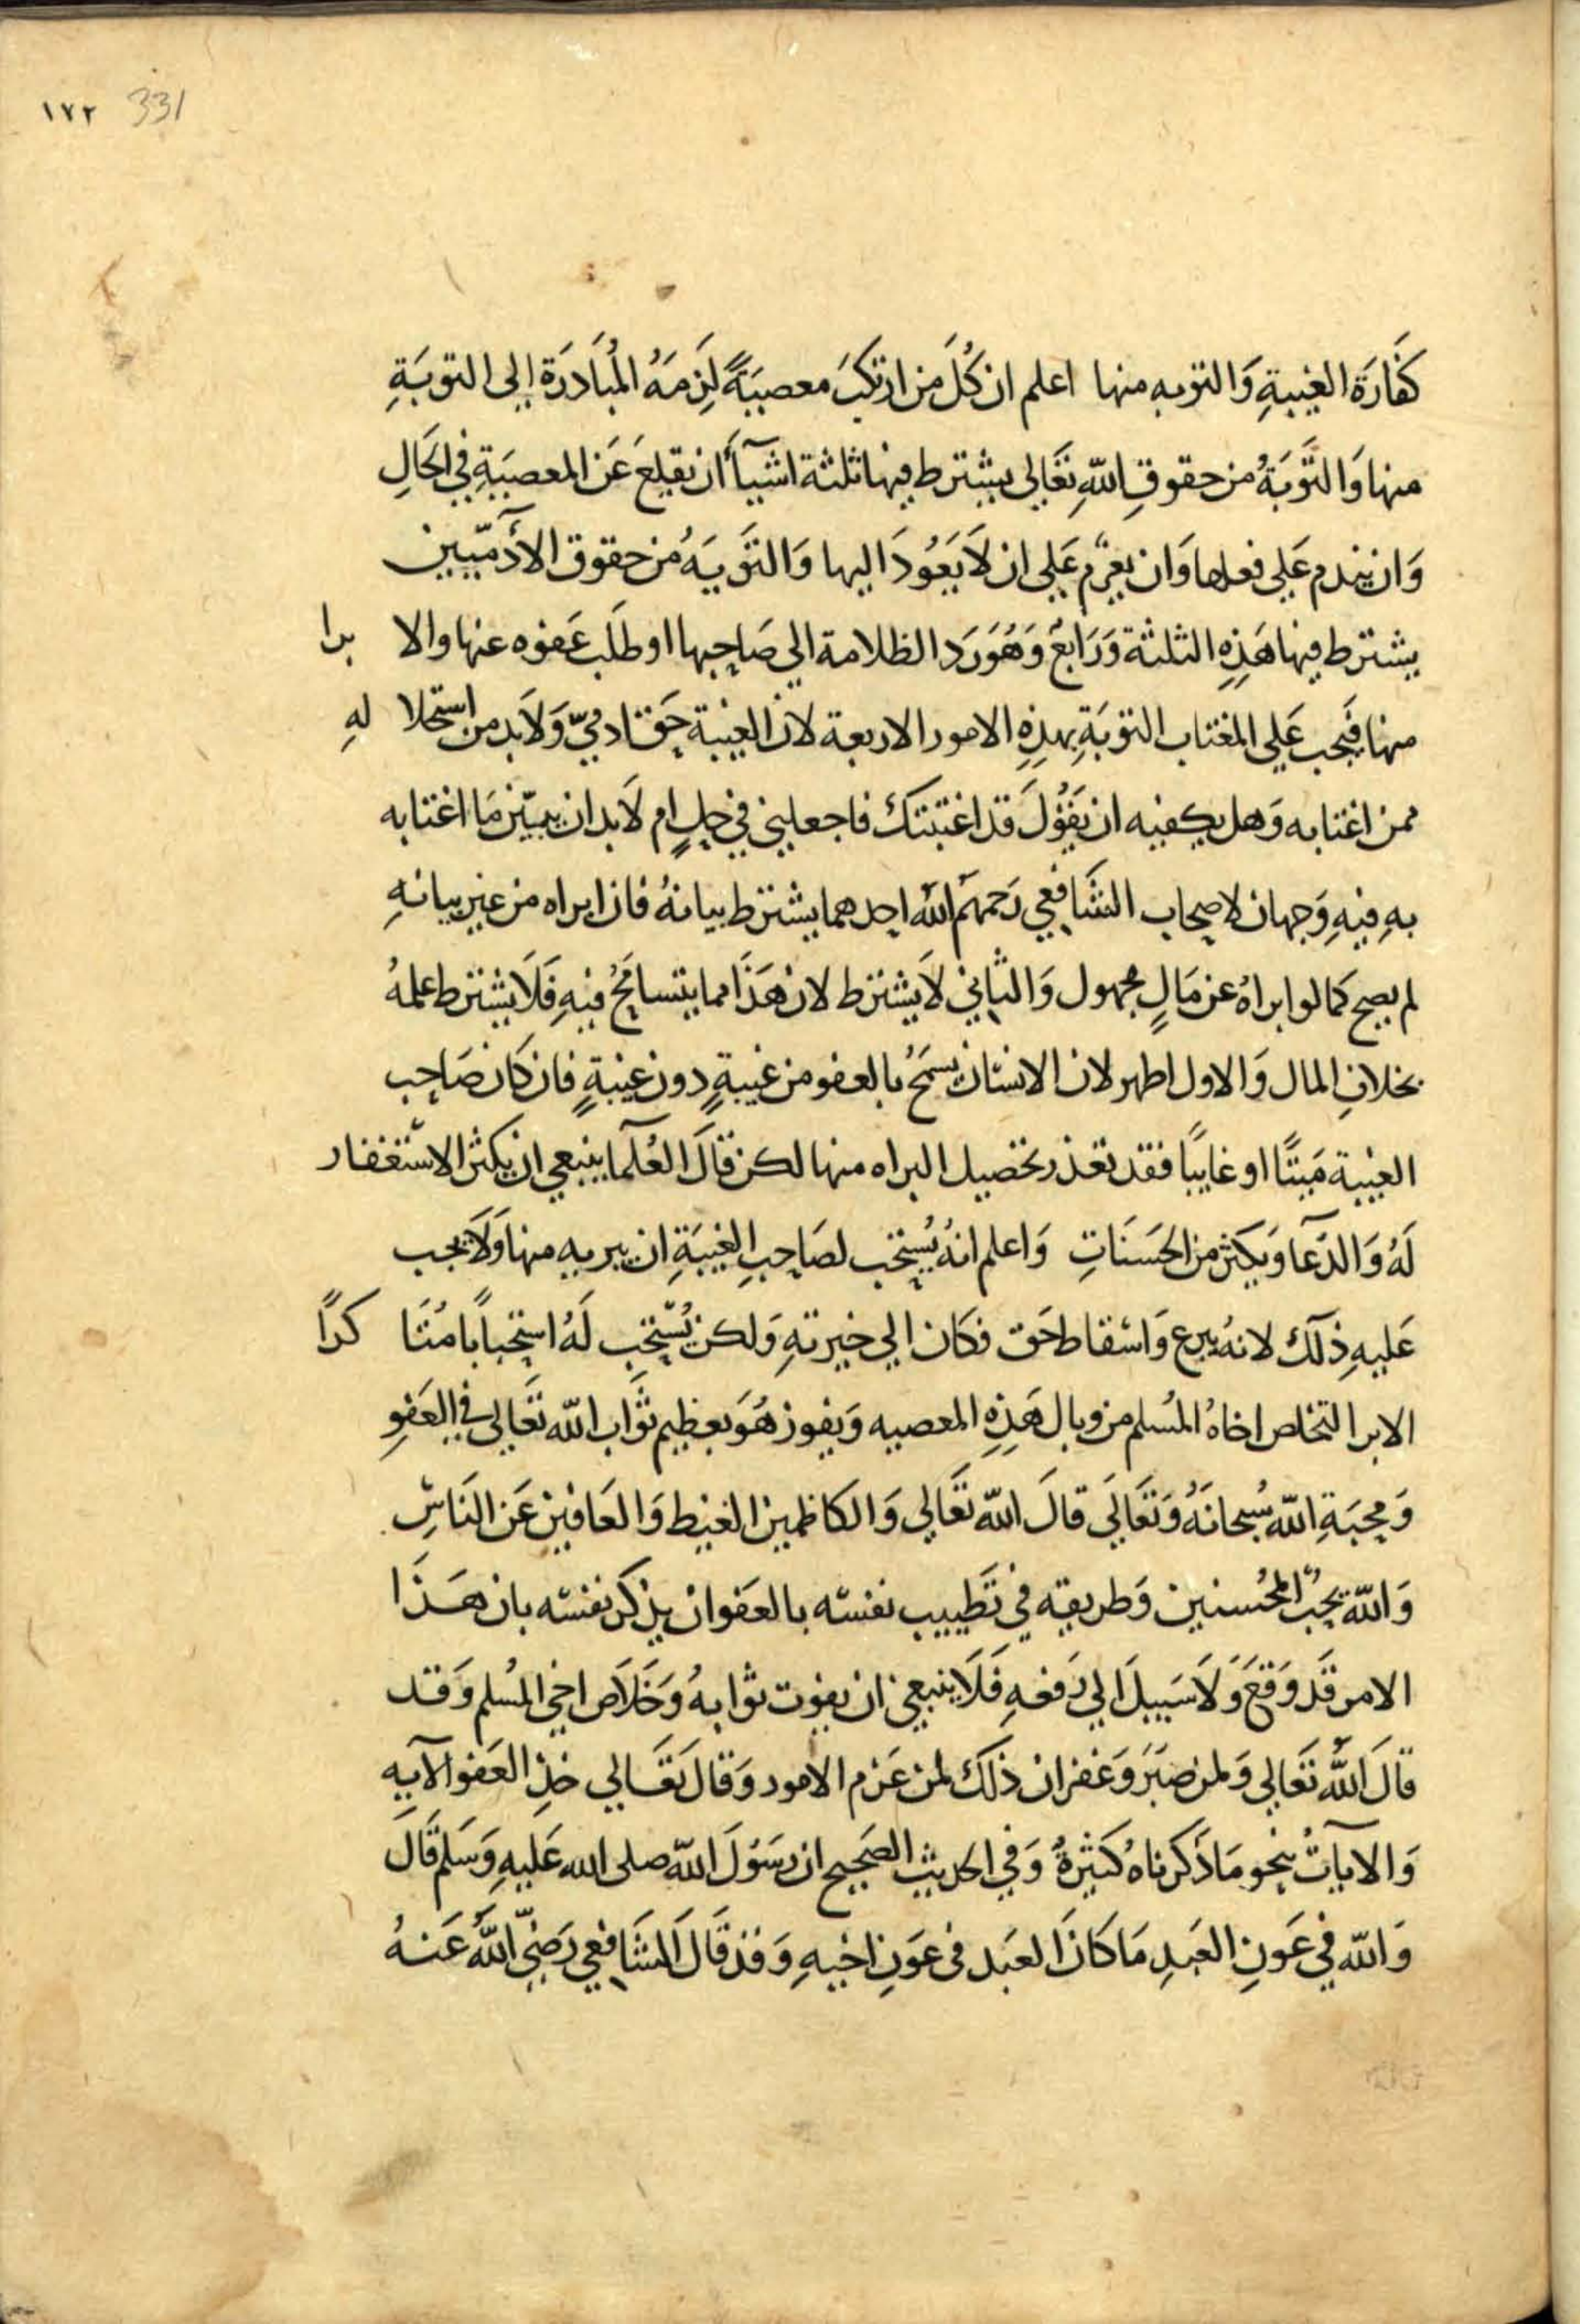 ١٧٢ 331
كَفَّارَة الغيبةِ وَالتوبه منها اعلم ان كُلَّ من ارتكبَ معصيَةً لَزِمَهُ المُبَادَرَة إلى التوبَةِ
منها وَالتَّوبَةُ من حقوقِ اللهِ تَعَالى يشترط فيها ثلثة اشيآأَن يقلِعَ عَن المعصيَةِ في الحَالِ
وَان يندم عَلى فعلها وَان يعزم عَلي ان لَا يَعُودَ اليها وَالتَّوبَهُ من حقوق الأدَمّيين
يشترط فيها هَذِهِ الثلثة وَرَابعٌ وَهُوَ رَد الظلامة الي صَاحِبها او طلَب عَفوه عنها والا برا
منها فَيجب عَلي المغتاب التوبَةِ بهذِهِ الامور الاربعة لان الغيبة حَق ادميّ وَلَا بد من استحلا لهِ
ممن اغتابه وَهل يكفيه ان يَقُولَ قد اغتبتك فاجعلني في حِلٍ ام لَابد ان يبيّن مَا اغتابه
بهِ فيهِ وَجهان لاصحاب الشَافعي رَحمهُم اللهُ احدهما يشترط بيانهُ فان ابراه من غير بيانهِ
لم يصح كَما لو ابراهُ عن مَالٍ مجهول وَالثاني لَا يشترط لان هَذَا مما يتسامَحُ فيهِ فَلَا يشترط علمهُ
بخلافِ المال وَالاول اظهر لان الانسان يسمَحُ بالعفو من غيبةٍ دون غيبةٍ فان كَان صَاحِب
الغيبة مَيتًا او غايبًا فقد تعذر تحصيل البراه منها لكن قَالَ العُلَمآ ينبغي ان يكثر الاستغفار
لَهُ وَالدّعَآ وَيكثر من الحَسَنَاتِ وَاعلم انهُ يُستحَب لصَاحِبِ الغيبَةِ ان يبريه منها وَلَا يجب
عَليهِ ذلَك لانهُ يبرع وَاسقاط حَق فكَان الي خيرتهِ وَلكن يُستحَب لَهُ استحبابًا مُتَا كدًا
الابرا لتخلص اخاهُ المُسلم من وبال هَذِهِ المعصيه وَيفوز هُوَ بعظيم ثَوَاب اللّه تَعَالى في العَفوِ
وَمحبَةِ اللّه سُبحانَهُ وَتَعَالَى قالَ اللّه تَعَالي وَالكَاظمين الغيظ وَالعَافين عَن النَاسِ
وَاللّه يحبُ المحُسنين وَطريقه في تَطييب نفسه بالعَفو ان يذكر نفسه بان هَذَا
الامر قَد وَقعَ وَلَا سَبيلَ الي رَفعهِ فَلَا ينبغي ان يفوت ثوابهُ وَخَلَاص اخي المُسلم وَقد
قالَ اللّهُ تَعَالي وَلمن صَبَرَ وَغفر ان ذلَك لمن عَزم الامور وَقالَ تَعَالي خذِ العَفو الآيه
وَالايآتُ بنحو مَا ذَكرناهُ كَثيرةٌ وَفي الحديث الصَحِيح ان رسُولَ اللّه صلى الله عَليهِ وَسَلم قَالَ
وَاللّه في عَونِ العَبدِ مَا كَانَ العَبد في عَونِ اخيهِ وَقد قَالَ الشَافعي رَضيَ اللّهُ عَنهُ